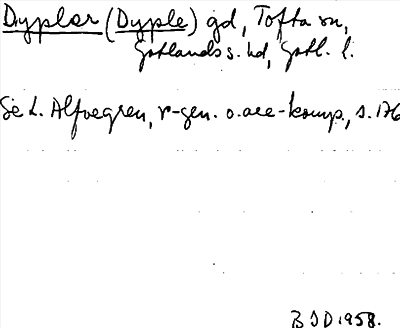 Dyplar (Dyple) gd, Tofta sn,
Gotlands s. hd, Gotl. l.
Se L. Alfvegren, r-gen. o. ace-komp., s. 176
BJD 1958.